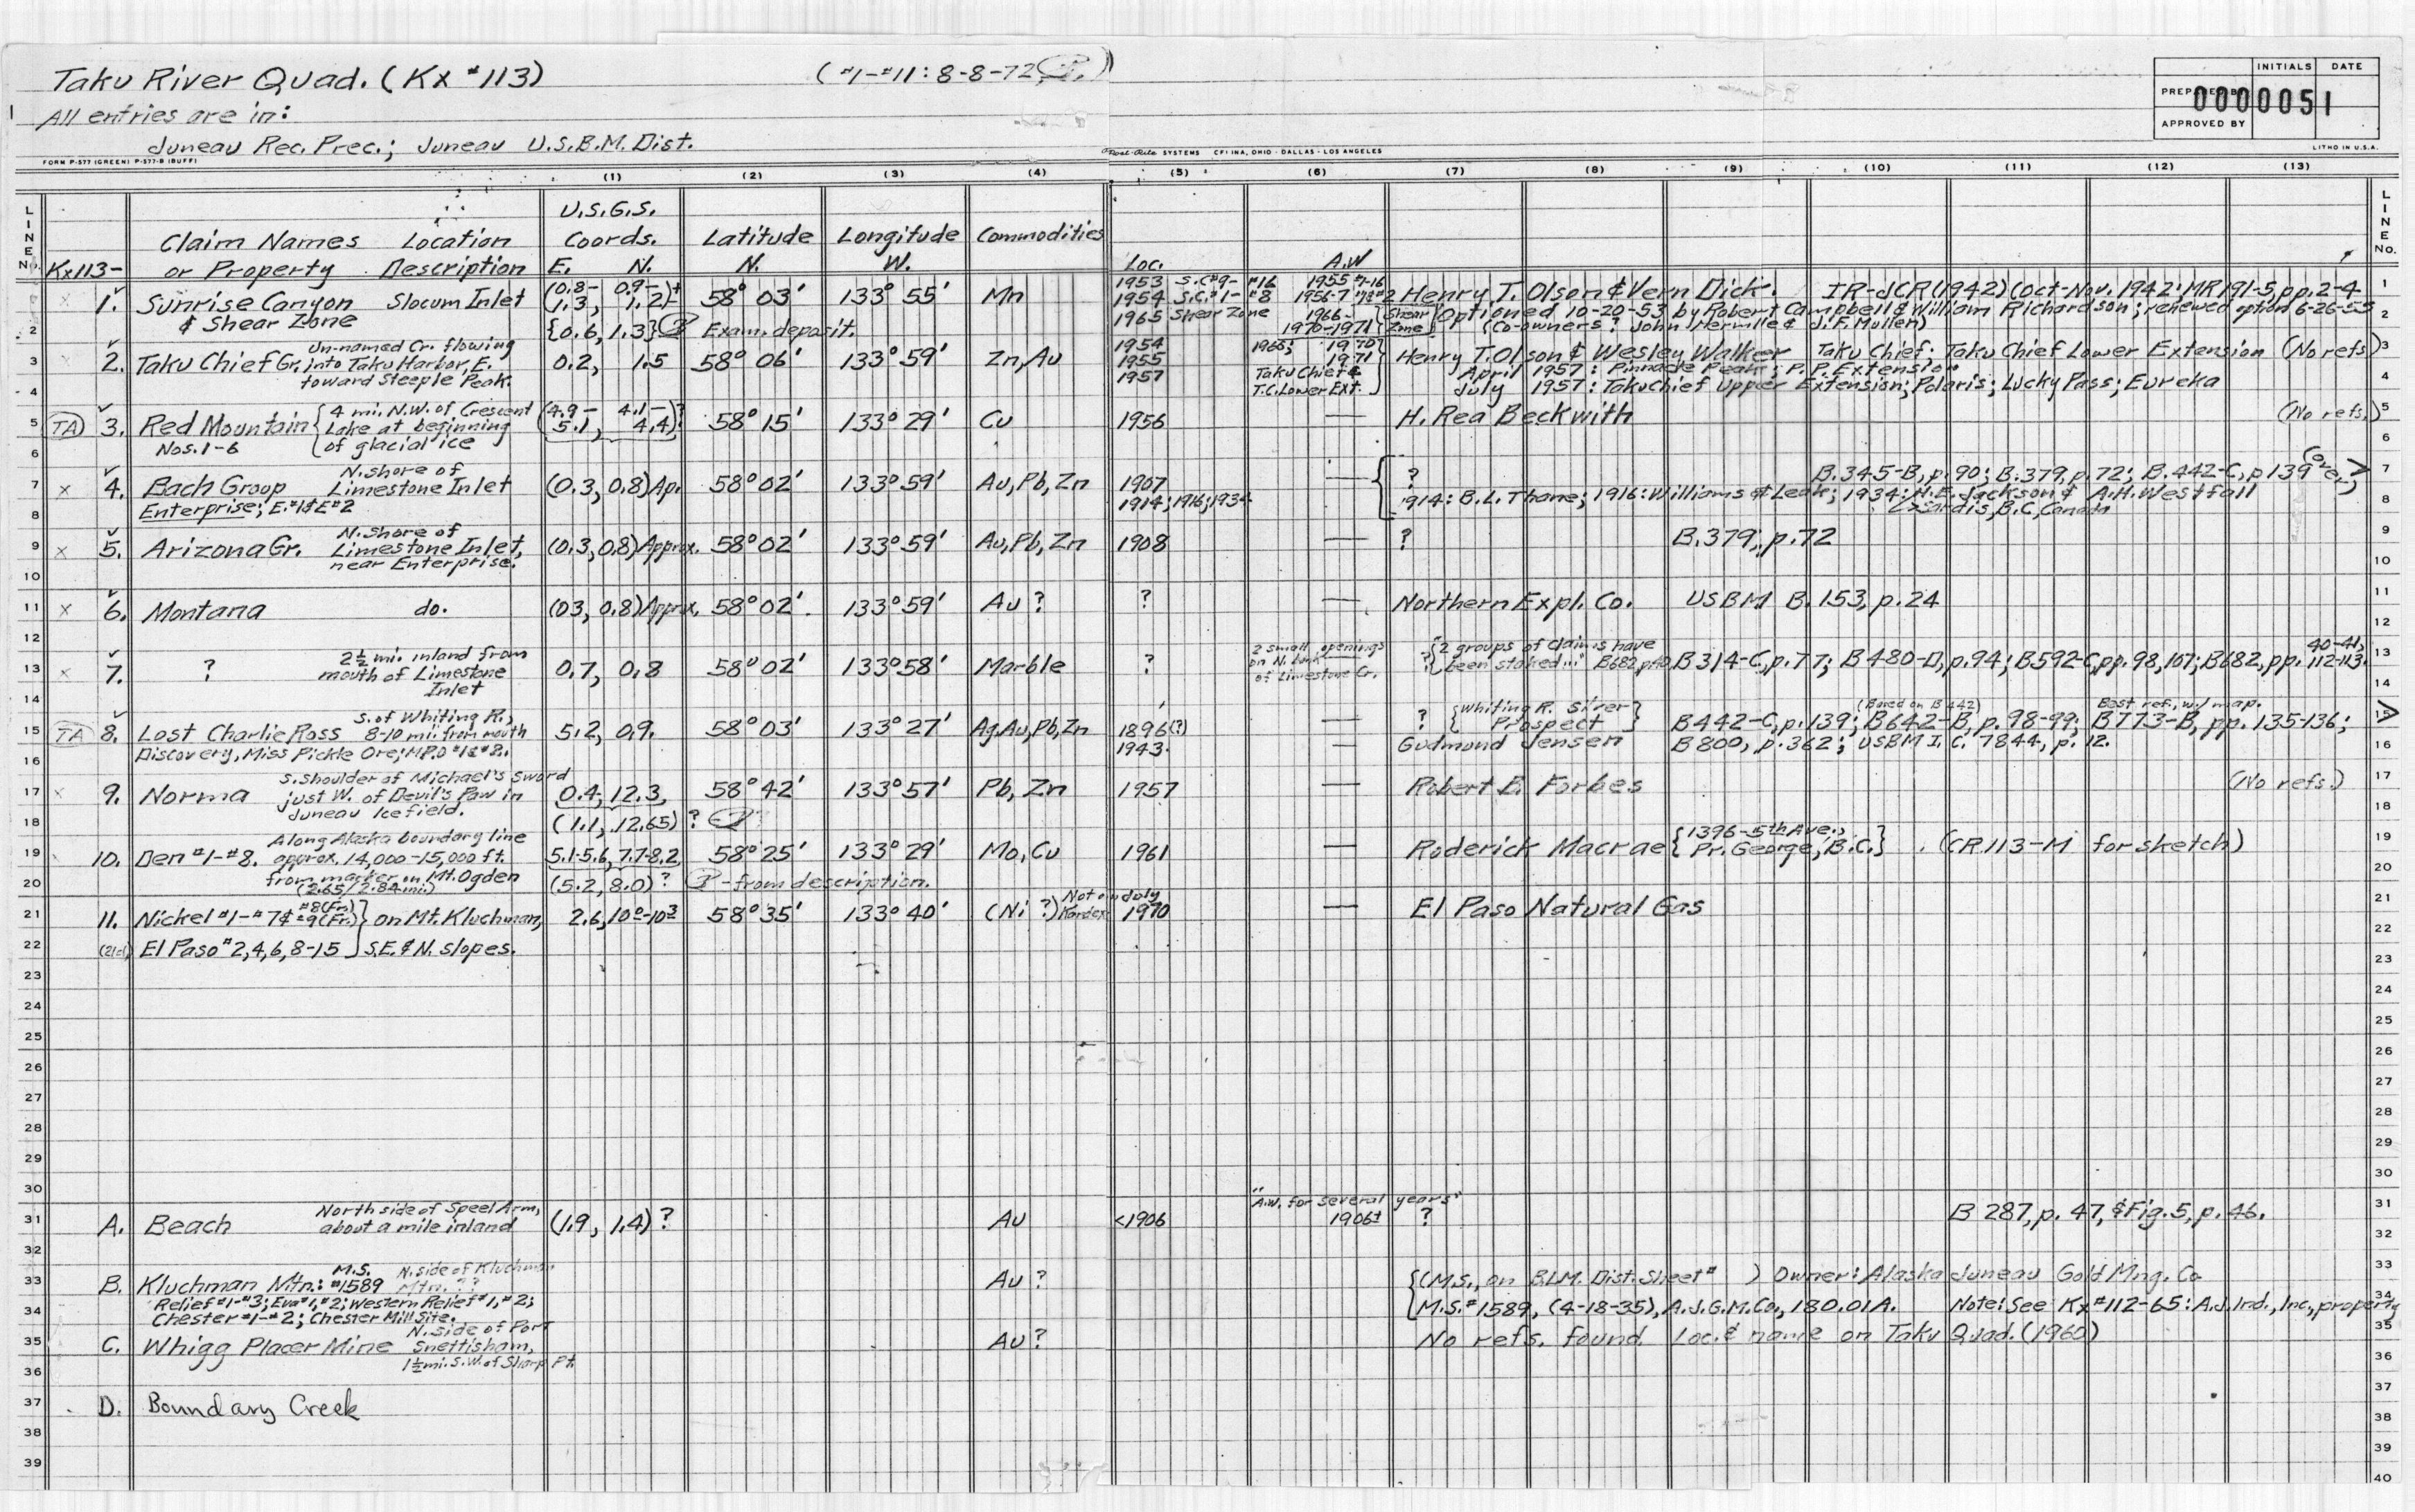 Taku River Quad. (Kx #113)
(#1-#11: 8-8-72)
All entries are in:
Juneau Rec. Prec.; Juneau U.S.B.M. Dist.
INITIALS DATE
PREPARED BY
0000051
APPROVED BY
FORM P-577 (GREEN) P-577-B (BUFF)
SYSTEMS OHIO - DALLAS - LOS ANGELES
LITHO IN U.S.A.
(1) (2) (3) (4) (5) (6) (7) (8) (9) (10) (11) (12) (13)
LINE No.
Kx113-
Claim Names or Property
Location Description
U.S.G.S. Coords. E. N.
Latitude N.
Longitude W.
Commodities
Loc.
A.W
LINE No.
1. Sunrise Canyon & Shear Zone
Slocum Inlet
(0.8-1.3, 0.9-1.2)±
58° 03' 133° 55' Mn
1953 S.C.#9-#16
1954 S.C.#1-#8
1965 Shear Zone
1955 #1-16
1956-7 #1&#2
1966-
1970-1971 {Shear Zone}
Henry T. Olson & Vern Dick. IR-JCR(1942)(Oct-Nov. 1942: MR191-5, pp. 2-4
Optioned 10-20-53 by Robert Campbell & William Richardson; renewed option 6-26-55
(Co-owners? John & J.F. Mullen)
{0.6, 1.3} Exam. deposit.
2. Taku Chief Gr.
Un-named Cr. flowing
into Taku Harbor, E.
toward Steeple Peak.
0.2, 1.5 58° 06' 133° 59' Zn, Au
1954
1955
1957
1966; 1970
1971
Taku Chief &
T.C. Lower Ext.
Henry T. Olson & Wesley Walker Taku Chief; Taku Chief Lower Extension (No refs.)
April 1957: Pinnacle Peak; P.P. Extension
July 1957: Taku Chief Upper Extension; Polaris; Lucky Pass; Eureka
(TA) 3. Red Mountain
Nos. 1-6
4 mi. N.W. of Crescent
Lake at beginning
of glacial ice
(4.9-5.1, 4.1-4.4)?
58° 15' 133° 29' Cu 1956 — H. Rea Beckwith (No refs.)
x 4. Bach Group
Enterprise; E.#1&E#2
N. shore of
Limestone Inlet
(0.3, 0.8) Ap. 58° 02' 133° 59' Au, Pb, Zn
1907
1914; 1916; 1934
— ? B.345-B, p. 90; B.379, p. 72; B.442-C, p 139 (over)
1914: B.L. Thane; 1916: Williams & Leak; 1934: H.E. Jackson & A.H. Westfall
Sardis, B.C., Canada
x 5. Arizona Gr.
N. shore of
Limestone Inlet,
near Enterprise.
(0.3, 0.8) Approx. 58° 02' 133° 59' Au, Pb, Zn 1908 — ? B.379, p. 72
x 6. Montana do. (03, 0.8) Approx. 58° 02' 133° 59' Au? ? — Northern Expl. Co. USBM B. 153, p. 24
x 7. ?
2½ mi. inland from
mouth of Limestone
Inlet
0.7, 0.8 58° 02' 133° 58' Marble ?
2 small openings
on N. bank
of Limestone Cr.
? {"2 groups of claims have
been staked..." B682 p40
B314-C, p. 77; B480-D, p. 94; B592-C, pp. 98, 107; B682, pp. 40-41, 112-113.
(TA) 8. Lost Charlie Ross
Discovery, Miss Pickle Ore; M.P.O #1&#2.
S. of Whiting R.,
8-10 mi. from mouth
5.2, 0.9. 58° 03' 133° 27' Ag, Au, Pb, Zn
1896(?)
1943
— ? {Whiting R. Silver
Prospect}
— Gudmund Jensen
(Based on B442) Best ref., w/ map.
B442-C, p. 139; B642-B, p. 98-99; B773-B, pp. 135-136;
B800, p. 362; USBM I.C. 7844, p. 12.
x 9. Norma
S. shoulder of Michael's Sword
just W. of Devil's Paw in
Juneau Icefield.
0.4, 12.3, 58° 42' 133° 57' Pb, Zn 1957 — Robert B. Forbes (No refs.)
(1.1, 12.65)?
10. Den #1-#8.
Along Alaska boundary line
approx. 14,000-15,000 ft.
from marker on Mt. Ogden
(2.65/2.84 mi.)
5.1-5.6, 7.7-8.2 58° 25' 133° 29' Mo, Cu 1961 — Roderick Macrae {1396-5th Ave.,
Pr. George, B.C.} (CR 113-M for sketch)
(5.2, 8.0)? - from description.
11. Nickel #1-#7 & #8(Fr.) #9(Fr.)
El Paso #2, 4, 6, 8-15
on Mt. Kluchman,
S.E. & N. slopes.
2.6, 10⁰-10³ 58° 35' 133° 40' (Ni?) Not on Kardex July 1970 — El Paso Natural Gas
A. Beach
North side of Speel Arm,
about a mile inland
(1.9, 1.4)? Au <1906
"A.W. for several years"
1906± ? B 287, p. 47, & Fig. 5, p. 46.
B. Kluchman Mtn.: M.S. #1589
N. side of Kluchman
Mtn. ??
Relief #1-#3; Eva #1, #2; Western Relief #1, #2;
Chester #1-#2; Chester Mill Site.
Au?
{(M.S., on B.L.M. Dist. Sheet # ) Owner: Alaska Juneau Gold Mng. Co
M.S.#1589, (4-18-35), A.J.G.M.Co., 180.01A. Note: See Kx#112-65: A.J. Ind., Inc., property
C. Whigg Placer Mine
N. side of Port
Snettisham,
1½ mi. S.W. of Sharp Pt.
Au?
No refs. found. Loc. & name on Taku Quad. (1960)
D. Boundary Creek